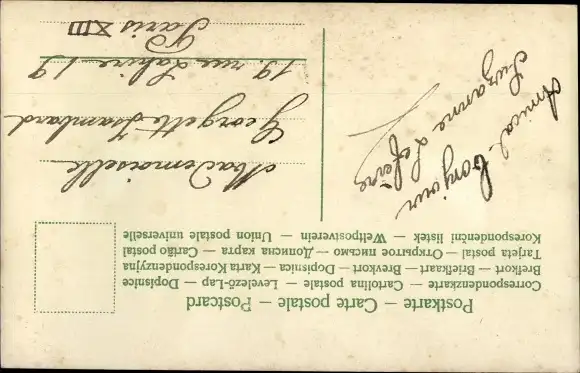 Postkarte — Carte postale — Postcard
Correspondenzkarte — Cartolina postale — Levelező-Lap — Dopisnice
Brefkort — Briefkaart — Brevkort — Dopisnica — Karta Korespondenzyjna
Tarjeta postal — Открытое письмо — Дописна карта — Cartão postal
Korespondenční lístek — Weltpostverein — Union postale universelle
Amical bonjour
Suzanne Lefèvre
Mademoiselle
Georgette Isambard
19. rue Lahire 19
Paris XIII